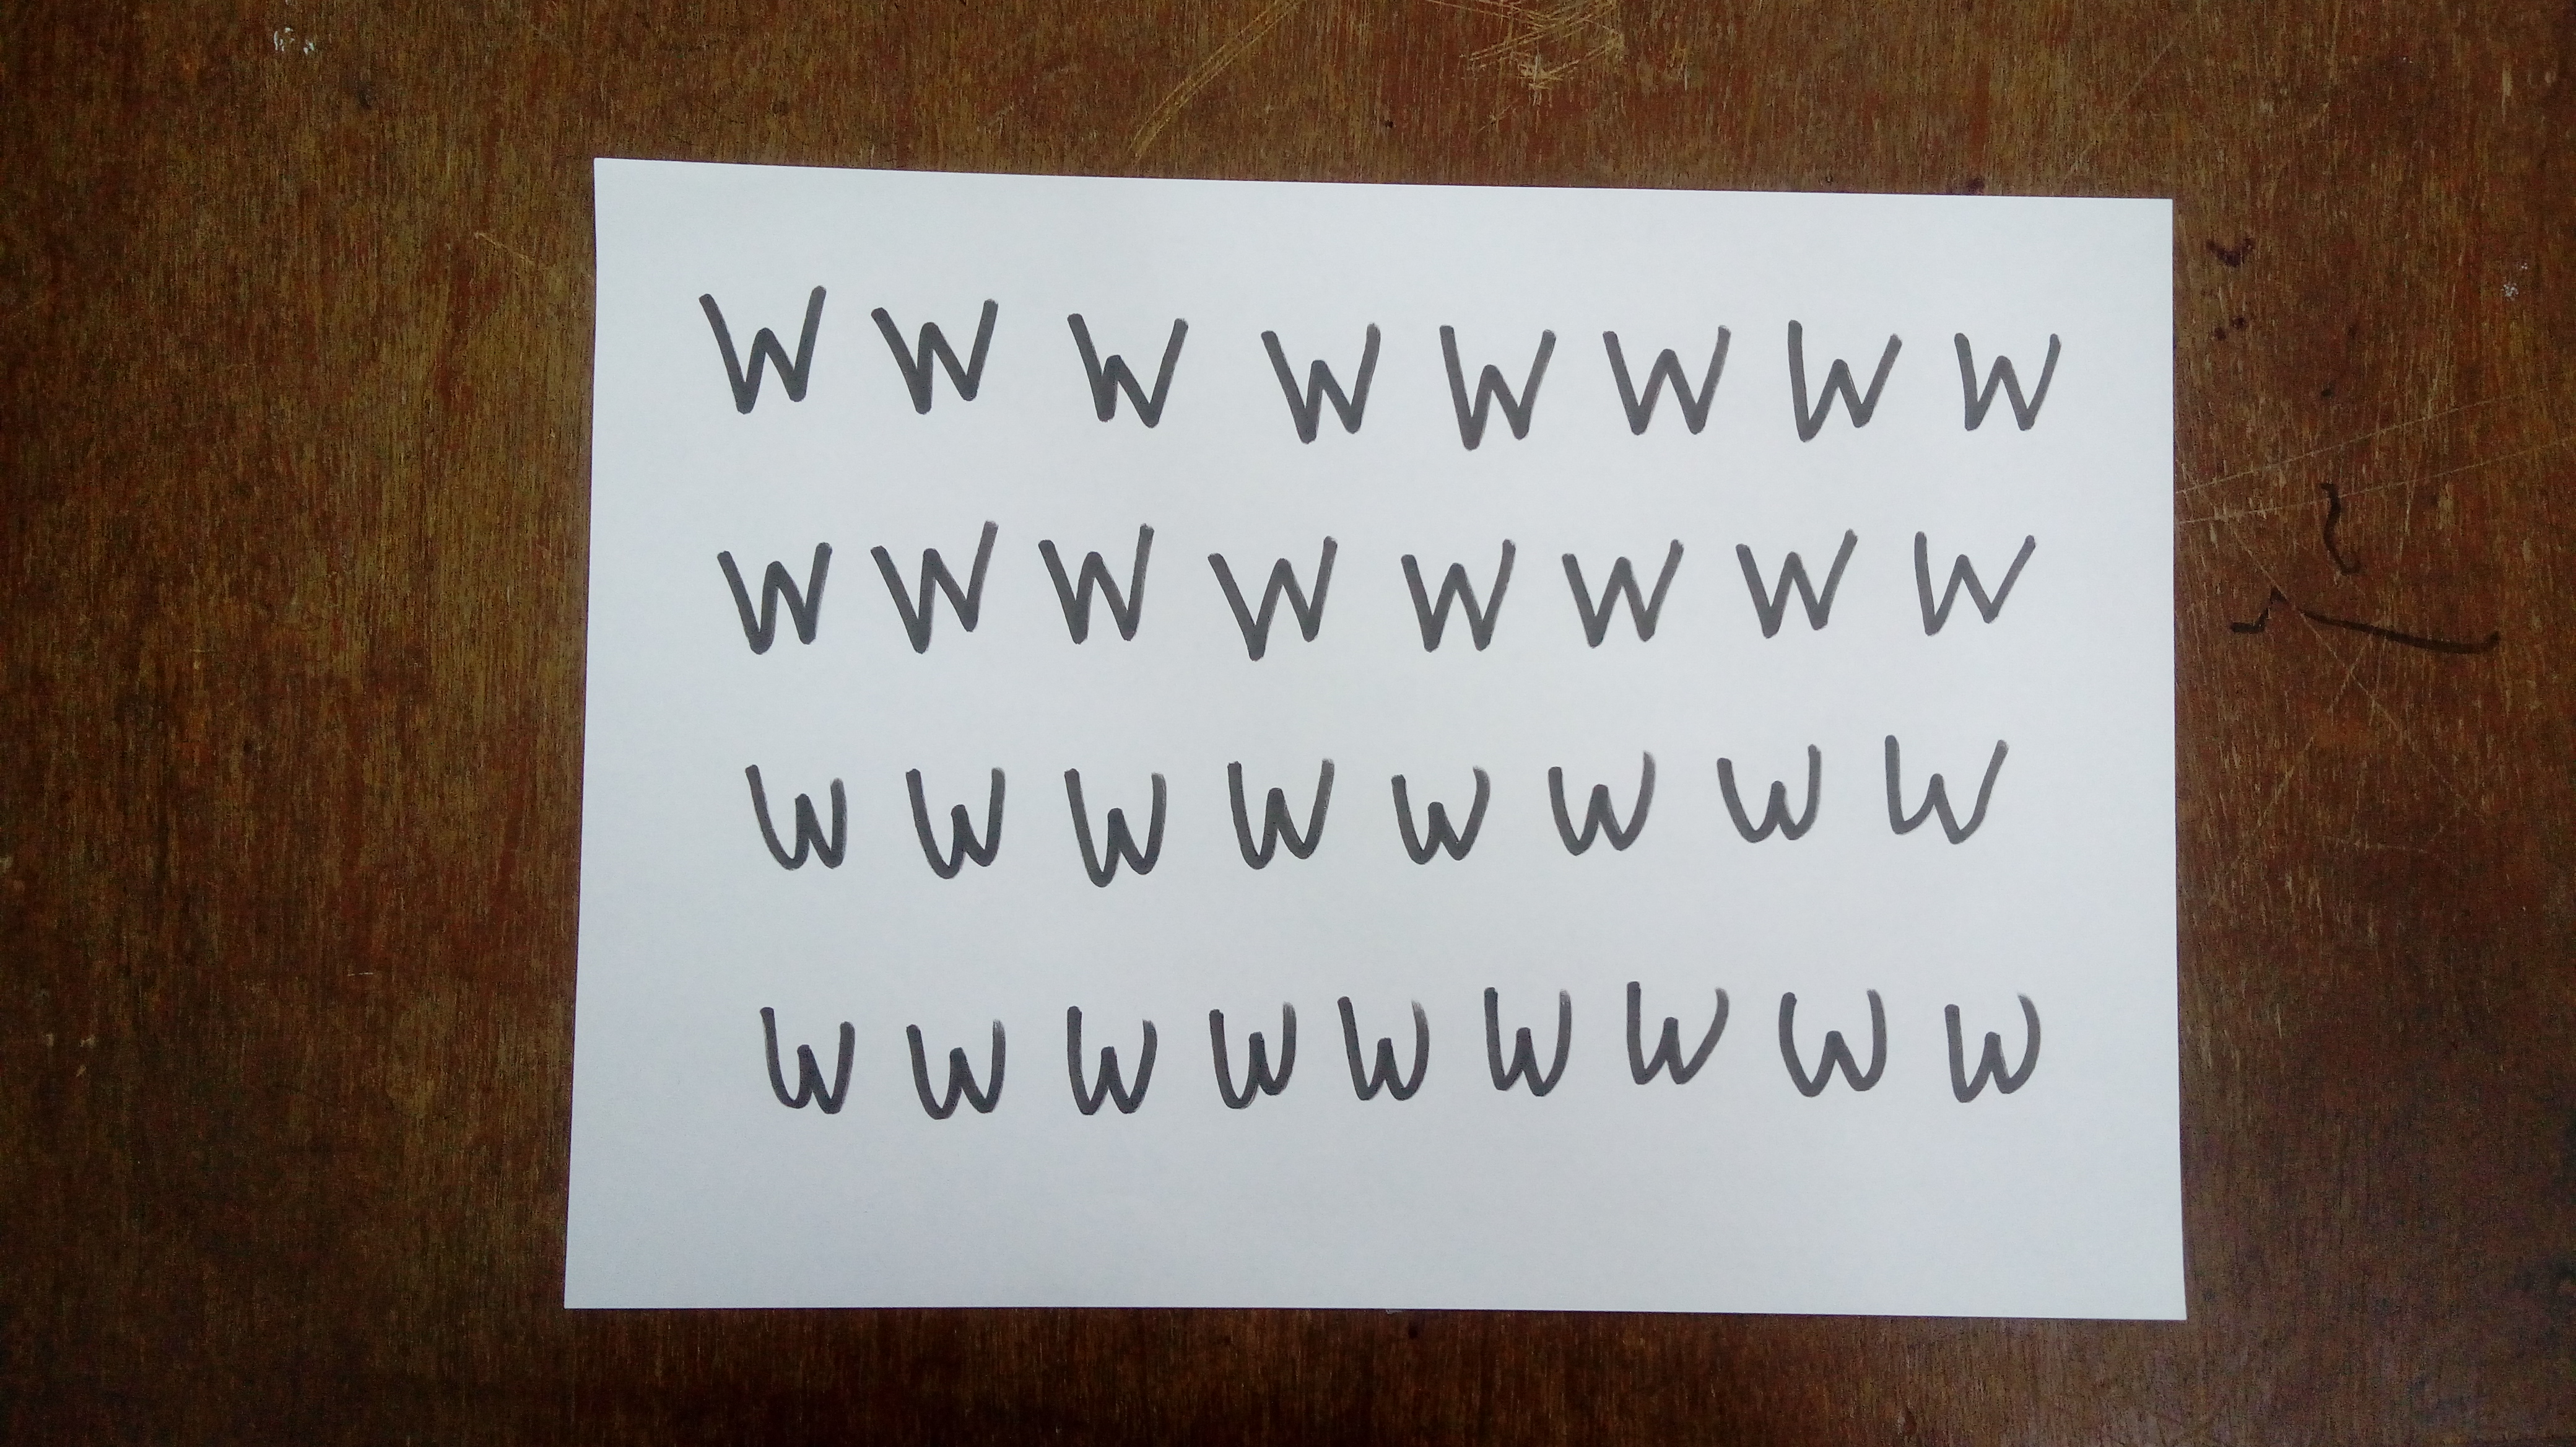 W W W W W W W W
W W W W W W W W
W W W W W W W W
W W W W W W W W W